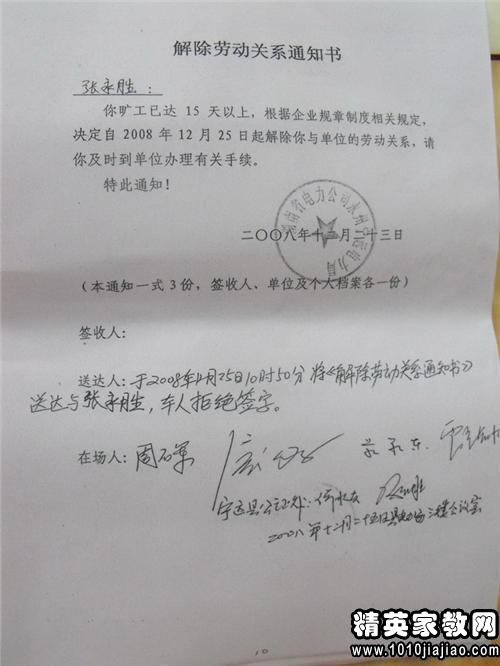 解除劳动关系通知书
张永胜：
你旷工已达 15 天以上，根据企业规章制度相关规定，
决定自 2008 年 12 月 25 日起解除你与单位的劳动关系，请
你及时到单位办理有关手续。
特此通知！
湖南省电力公司永州宁远电力局
二〇〇八年十二月二十三日
（本通知一式 3 份，签收人、单位及个人档案各一份）
签收人：
送达人：于2008年12月25日10时50分将《解除劳动关系通知书》
送达与张永胜，本人拒绝签字。
在场人：周石军
宁远县公证处：
二〇〇八年十二月二十五日
10
精英家教网
www.1010jiajiao.com